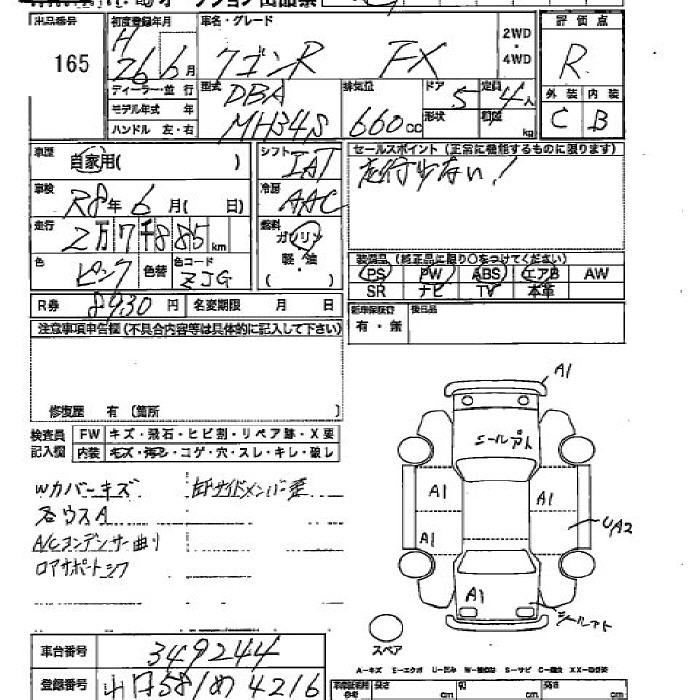 出品番号 初度登録年月 車名・グレード 2WD・4WD 評価点
165 H 26 6月 ワゴンR FX R
ディーラー・並行 型式 DBA 排気位 ドア 5 定員 4人 外装 内装
モデル年式 年 形状 積算
ハンドル 左・右 MH34S 660cc kg C B
車歴 自家用( ) シフト IAT セールスポイント (正常に機能するものに限ります)
走行少ない!
車検 R8年6月( 日) 冷房 AAC
走行 2万7千885km 燃料 ガソリン
軽・油
( )
装備品 (純正品に限り○をつけてください)
色 ピンク 色替 色コード ZJG
PS PW ABS エアB AW
SR ナビ TV 本革
R券 8930円 名変期限 月 日
新車保証書 後日品
有・無
注意事項申告欄(不具合等は具体的に記入して下さい)
修復歴 有 〔箇所 〕
検査員 FW キズ・飛石・ヒビ割・リペア跡・X要
記入欄 内装 キズ・コゲ・穴・スレ・キレ・破レ
Wカバーキズ 右Fサイドメンバー歪
各ウスA
A/Cコンデンサー曲り
ロアサポートシワ
A1
シールアト
A1 A1
A1 UA2
A1
シールアト
スペア
A-キズ E-エクボ U-凹み S-サビ
車台番号 349244
登録番号 581 め 4216
長さ cm 幅 cm 高さ cm